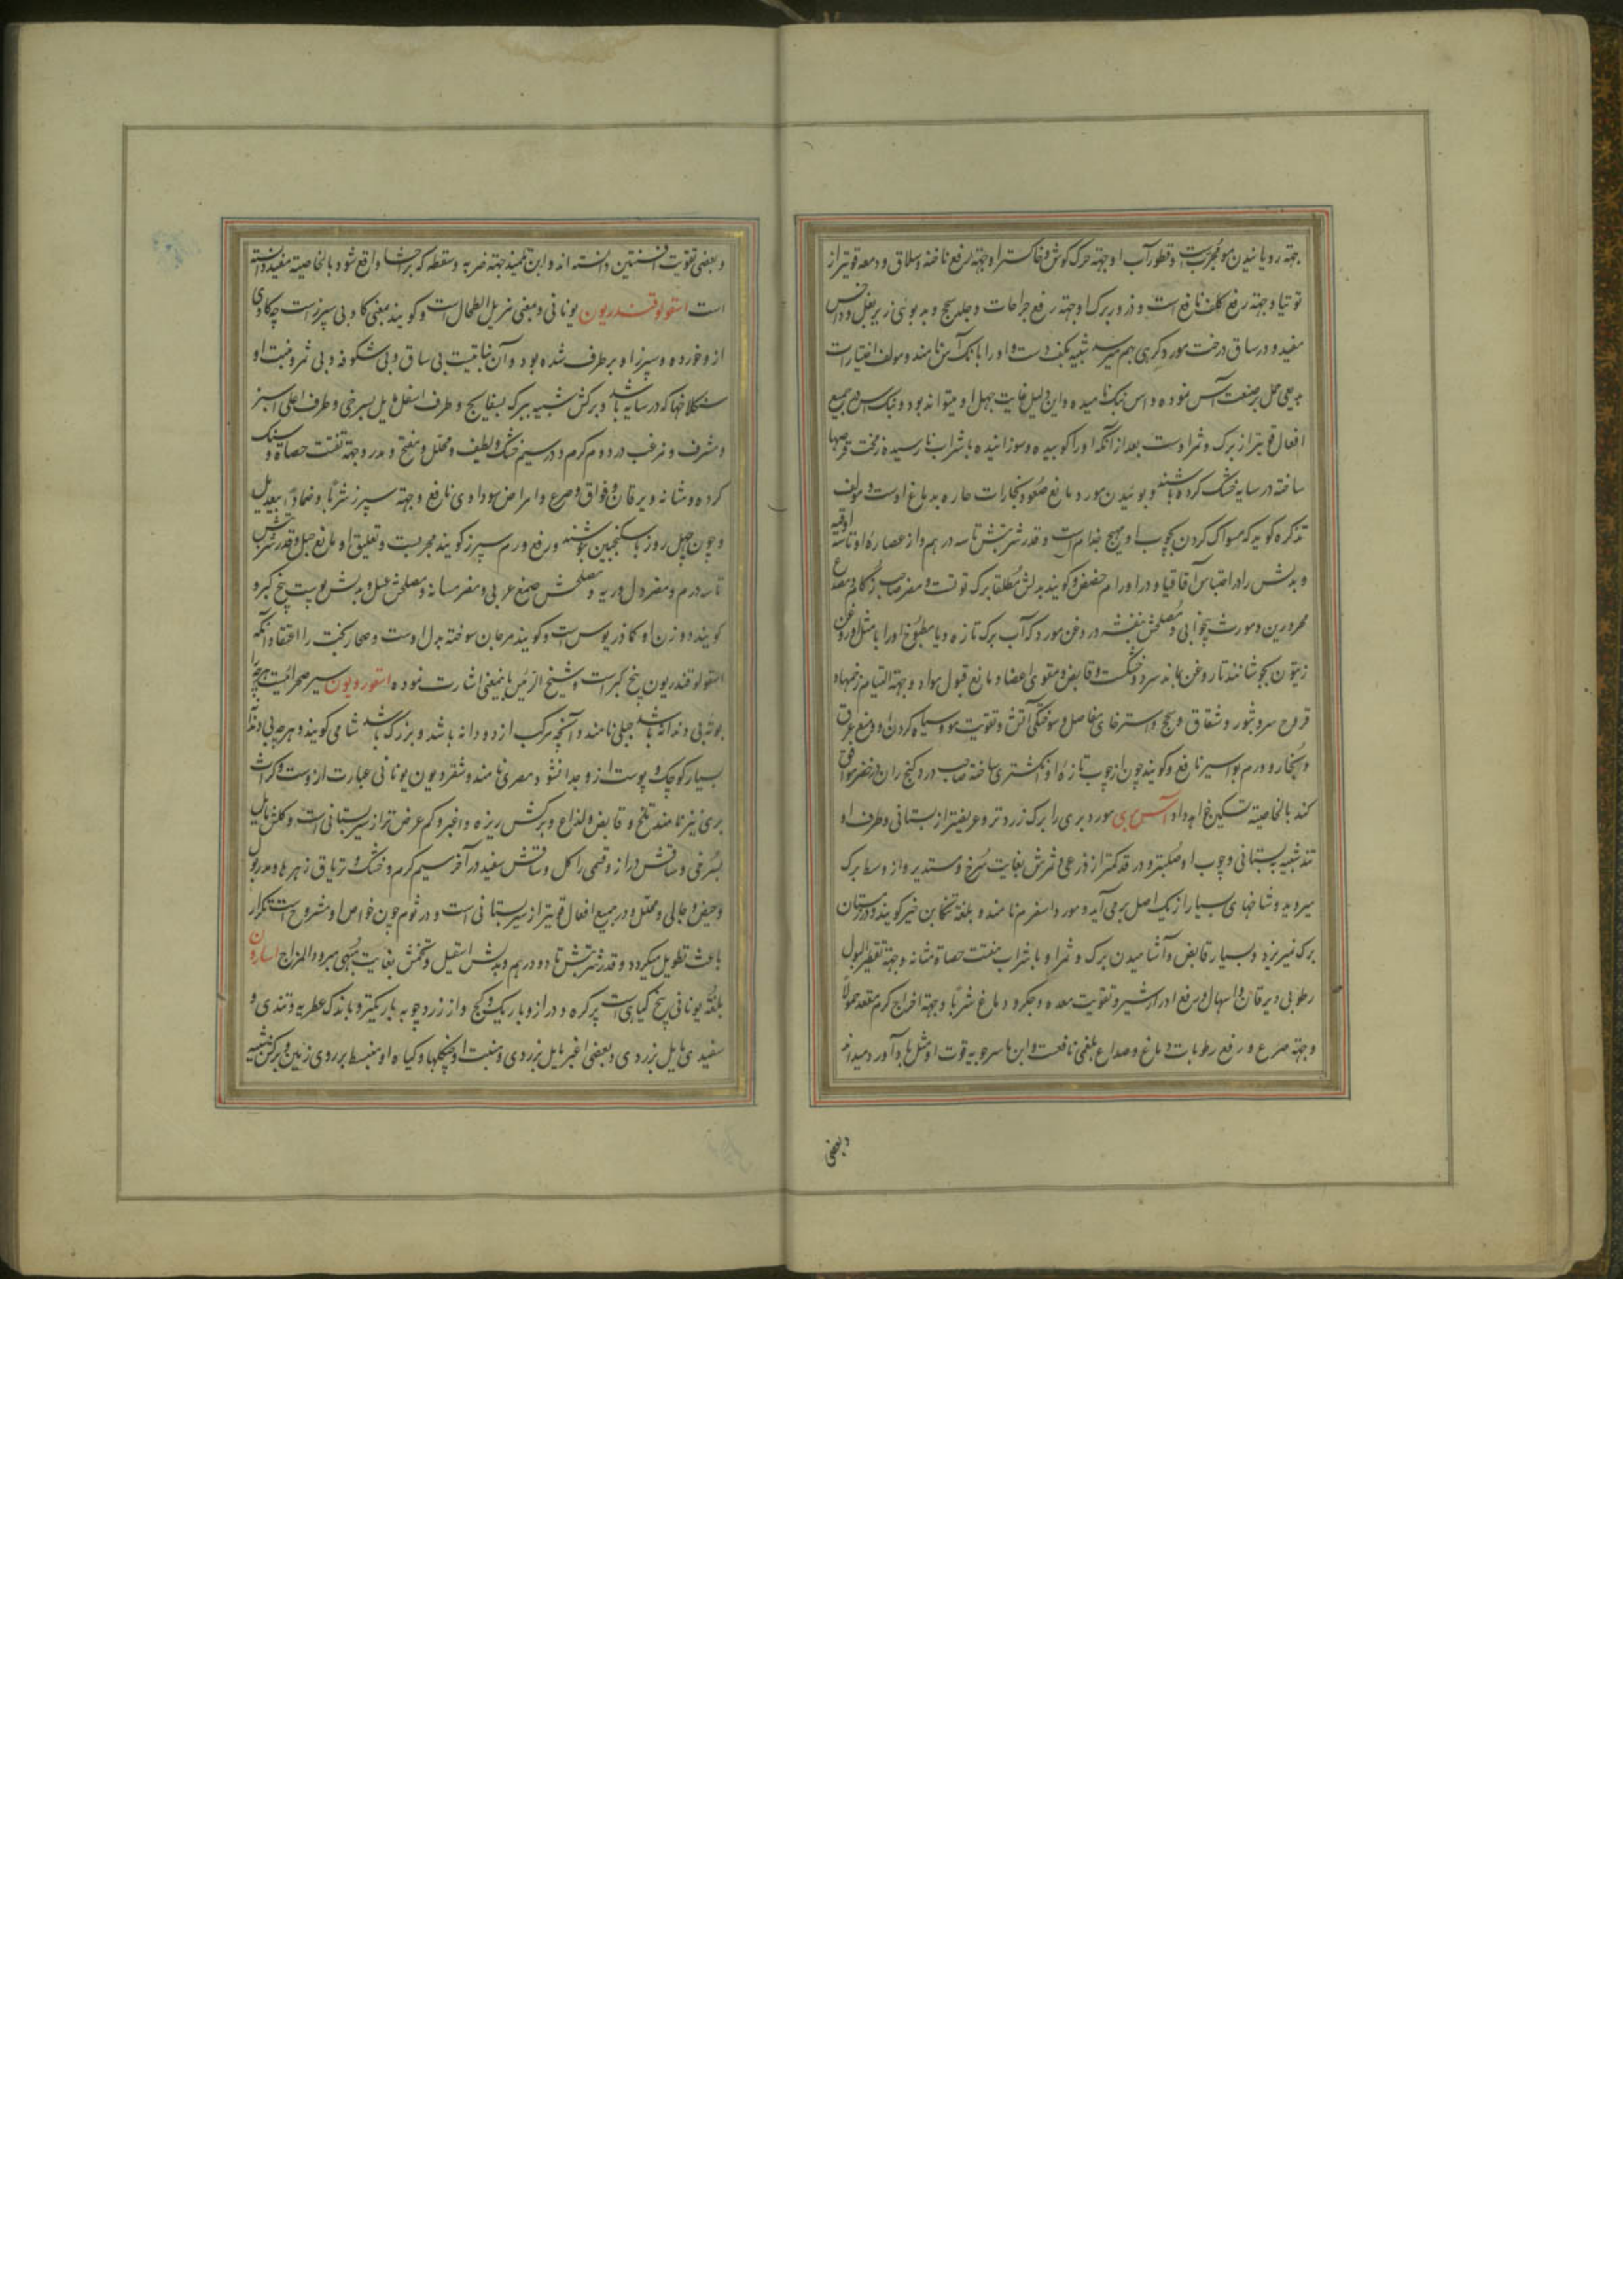 جهته رویانیدن مو مجربست و قطور آب او جهته چرک کوش و خاکستر او جهته رفع ناخنه و سلاق و دمعه قویتر از
توتیا و جهته رفع کلف نافع است و ذرور برک او جهته رفع جراحات و جلد سحج و بدبوئی زیر بغل و داحس
مفید و در ساق درخت مورد کرهی بهم میرسد شبیه بکف دست و او را بانک آس نامند و مولف اختیارات
بدیعی حمل بر صنعت آس نموده و آس بنک نامیده و این دلیل غایت جهل او میتواند بود و بنک آس در جمیع
افعال قویتر از برک و ثمر اوست بعد از آنکه او را کوبیده و سوزانیده با شراب نارسیده زمخت قرصها
ساخته در سایه خشک کرده باشند و بوئیدن مورد مانع صعود بخارات حاره بدماغ اوست و مولف
تذکره کوید که مسواک کردن بچوب او مهیج جذام است و قدر شربتش تا سه درهم و از عصاره او تا سه اوقیه
و بدلش را در احتباس اقاقیا و در اورام حضض و کویند بدلش مطلقا برک توتست و مضر صاحب زکام و صداع
محرورین و مورث بیخوابی و مصلحش بنفشه و روغن مورد که آب برک تازه و یا مطبوخ او را با مثل او روغن
زیتون بجوشانند تا روغن بماند سرد و خشکست و قابض و مقوی اعضا و مانع قبول مواد و جهته التیام زخمها و
قروح سر و بثور و شقاق و سحج و استرخای مفاصل و سوختکی آتش و تقویت مو و سیاه کردن او و منع عرق
و بخار و ورم بواسیر نافع و کویند چون از چوب تازه او انکشتری ساخته صاحب درد کنج ران در خنصر موافق
کند بالخاصیته تسکین خواهد داد آس بری مورد بری را برک زردتر و عریضتر از بستانی و طرف او
تند شبیه ببستانی و چوب او صلبتر و در قد کمتر از ذرعی و ثمرش بغایت سرخ و مستدیر و از وسط برک
میروید و شاخهای بسیار از یک اصل برمی آید و مورد اسفرم نامند و بلغته تنکابن خیر کویند و در زمستان
برک نمیریزد و بسیار قابض و آشامیدن برک و ثمر او با شراب مفتت حصاة مثانه و جهته تقطیر البول
رطوبی و یرقان و اسهال و رفع ادرار شیر و تقویت معده و جکر و دماغ شربا و جهته اخراج کرم مقعد حمولا
و جهته صرع و رفع رطوبات دماغ و صداع بلغمی نافعست و ابن ماسرجویه قوت او مثل باداورد میداند
وبعضی
و بعضی تقویت افسنتین دانسته اند و ابن تلمیذ جهته ضربه و سقطه که بر احشا واقع شود بالخاصیته مفید دانسته
است اسقولوقندریون یونانی و بمعنی مزیل الطحال است و کویند بمعنی کاو بی سپرز است چه کاوی
از و خورده و سپرز او برطرف شده بود و آن نباتیست بی ساق و بی شکوفه و بی ثمر و منبت او
سنکلاخها که در سایه باشد و برکش شبیه ببرک بسفایج و طرف اسفل مایل بسرخی و طرف اعلی سبز
و مشرف و مزغب در دوم کرم و در سیم خشک و لطیف و محلل و مفتح و مدر و جهته تفتت حصاة و سنک
کرده و مثانه و یرقان و فواق و صرع و امراض سوداوی نافع و جهته سپرز شربا و ضمادا بیعدیل
و چون چهل روز با سکنجبین بنوشند و رفع ورم سپرز کویند مجربست و تعلیق او مانع حبل و قدر شربتش
تا سه درم و مضر دل و ریه و مصلحش صمغ عربی و مضر مسانه و مصلحش عسل و بدلش پوست بیخ کبر و
کویند دو وزن او کماذریوس است و کویند مرجان سوخته بدل اوست و صحار بخت را اعتقاد آنکه
اسقولوقندریون بیخ کبر است و شیخ الرئیس باینمعنی اشارت نموده اسقوردیون سیر صحرائیست هرچه را
بوته بی دندانه باشد جبلی نامند و آنچه مرکب از دو دانه باشد و بزرک باشد شامی کویند و هرچه بی دندانه
بسیار کوچک و پوست از و جدا نشود مصری نامند و شقردیون یونانی عبارت ازوست و کراث
بری نیز نامند تلخ و قابض و لذاع و برکش ریزه و اغبر و کم عرض تر از سیر بستانی است و کلش مایل
بسرخی و ساقش دراز و قسمی را کل و ساقش سفید در آخر سیم کرم و خشک و تریاق زهرها و مدر بول
و حیض و جالی و محلل و در جمیع افعال قویتر از سیر بستانی است و در ثوم چون خواص او مشروح است تکرار
باعث تطویل میکردد و قدر شربتش تا دو درهم و بدلش اسقیل و تخمش بغایت مبهی مبرود المزاج اسارون
بلغته یونانی بیخ کیاهی است پرکره و دراز و باریک و کج و از زردچوبه باریکتر و با اندک عطریه و تندی و
سفیدی مایل بزردی و بعضی اغبر مایل بزردی و منبت او جنکلها و کیاه او منبسط بر روی زمین و برکش شبیه